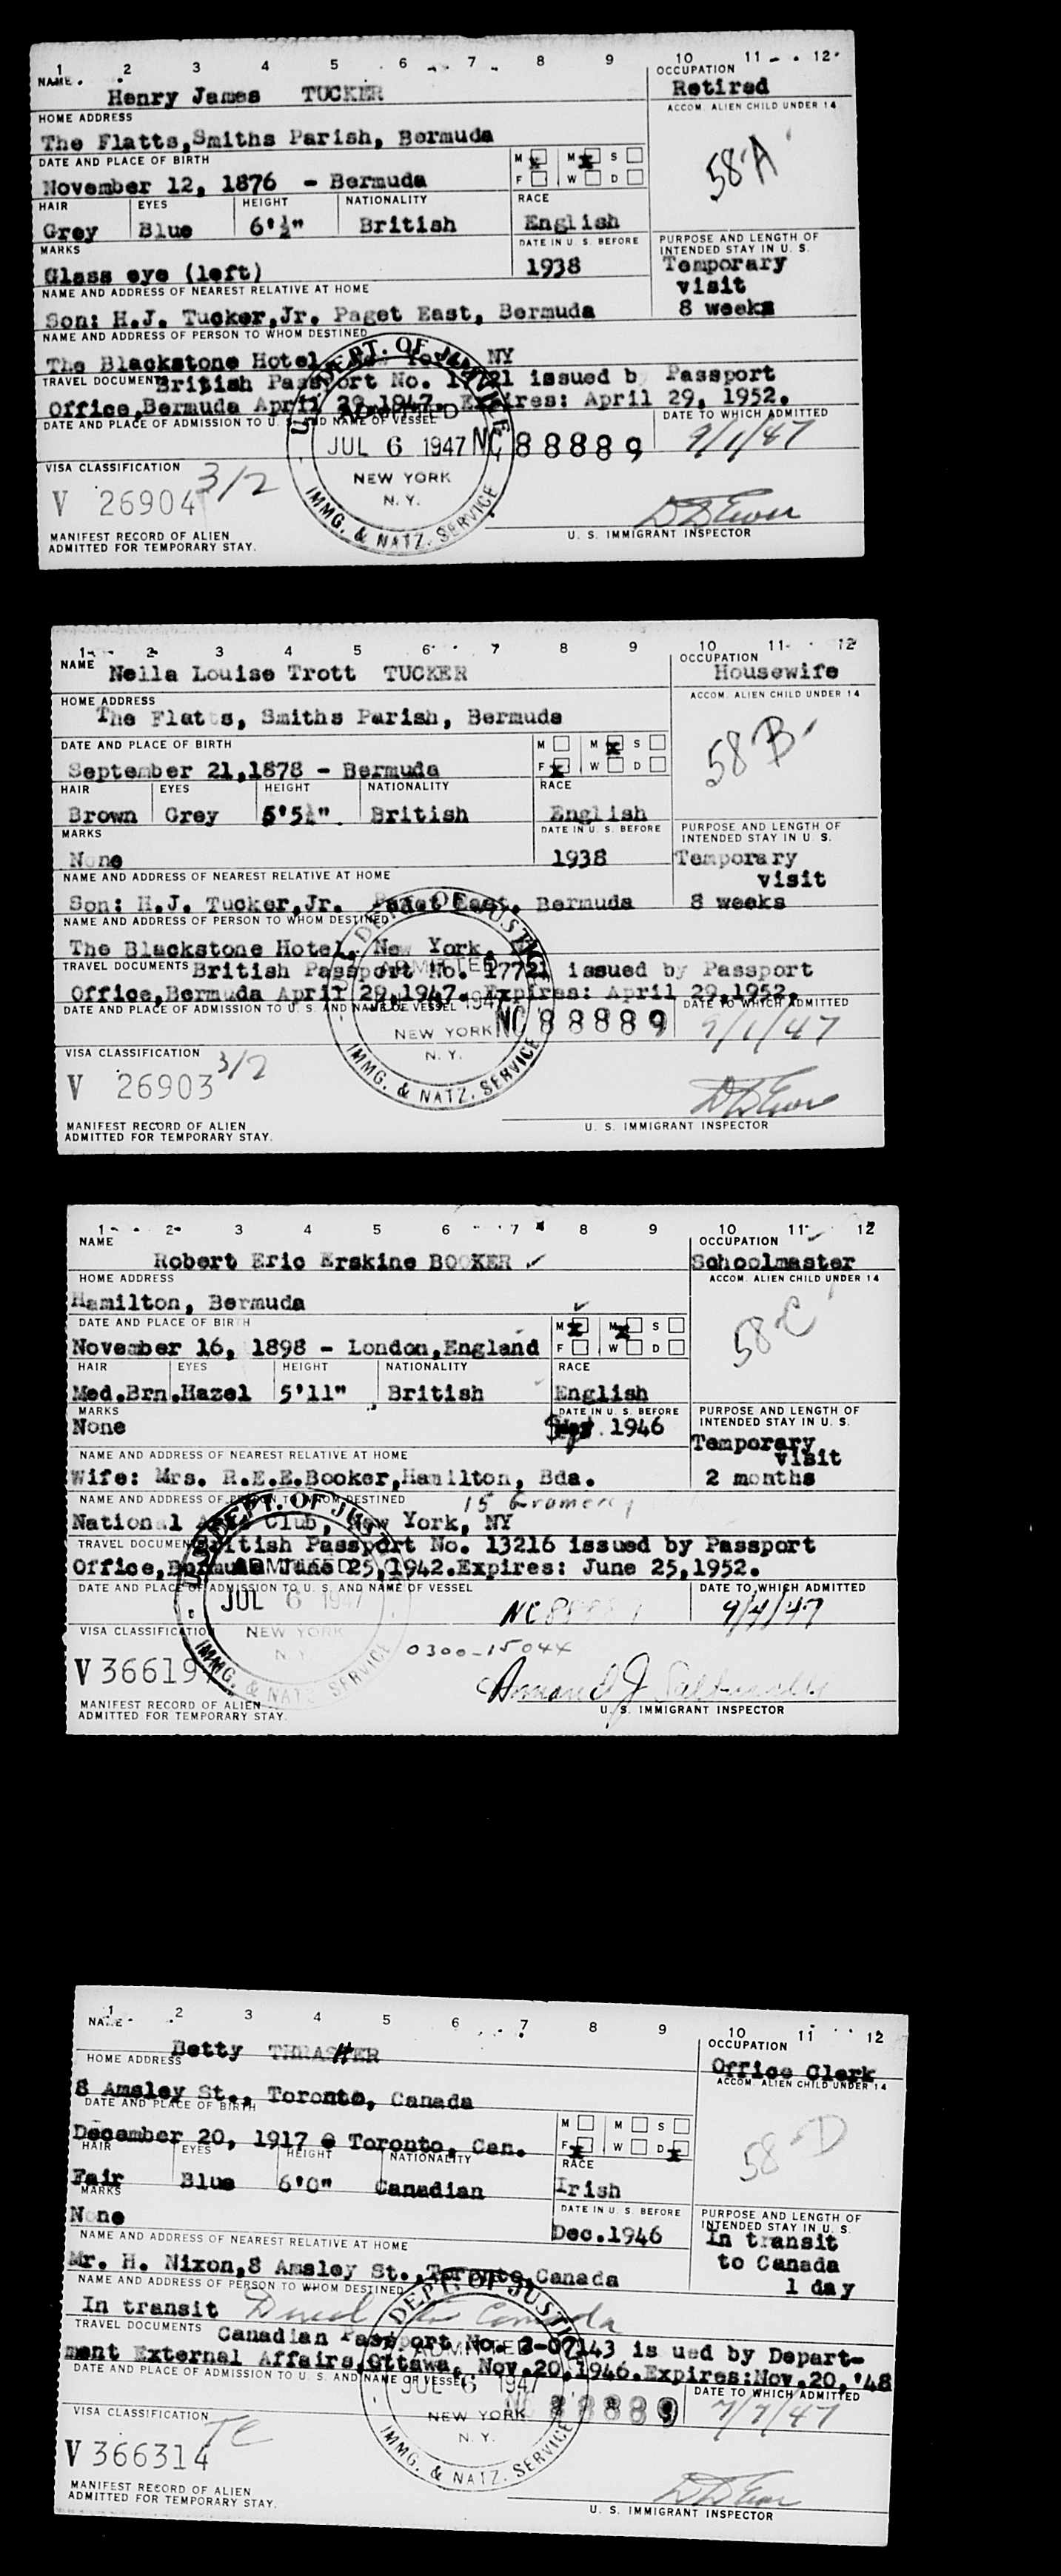 1 2 3 4 5 6 7 8 9 10 11 12
NAME OCCUPATION
Henry James TUCKER Retired
HOME ADDRESS ACCOM. ALIEN CHILD UNDER 14
The Flatts,Smiths Parish, Bermuda 58-A
DATE AND PLACE OF BIRTH M M S
November 12, 1876 - Bermuda F W D
HAIR EYES HEIGHT NATIONALITY RACE
Grey Blue 6'½" British English
MARKS DATE IN U. S. BEFORE PURPOSE AND LENGTH OF INTENDED STAY IN U. S.
Glass eye (left) 1938 Temporary visit 8 weeks
NAME AND ADDRESS OF NEAREST RELATIVE AT HOME
Son: H.J. Tucker,Jr. Paget East, Bermuda
NAME AND ADDRESS OF PERSON TO WHOM DESTINED
The Blackstone Hotel, NY
TRAVEL DOCUMENTS British Passport No. issued b Passport
Office,Bermuda April 29,1947. Expires: April 29, 1952.
DATE AND PLACE OF ADMISSION TO U. S. AND NAME OF VESSEL DATE TO WHICH ADMITTED
U. S. DEPT. OF JUSTICE
ADMITTED
JUL 6 1947 NC 88889 9/1/47
NEW YORK
N. Y.
IMMG. & NATZ. SERVICE
VISA CLASSIFICATION 3/2
V 26904
MANIFEST RECORD OF ALIEN U. S. IMMIGRANT INSPECTOR
ADMITTED FOR TEMPORARY STAY.
1 2 3 4 5 6 7 8 9 10 11 12
NAME OCCUPATION
Nella Louise Trott TUCKER Housewife
HOME ADDRESS ACCOM. ALIEN CHILD UNDER 14
The Flatts, Smiths Parish, Bermuda 58 B
DATE AND PLACE OF BIRTH M M S
September 21,1878 - Bermuda F W D
HAIR EYES HEIGHT NATIONALITY RACE
Brown Grey 5'5½" British English
MARKS DATE IN U. S. BEFORE PURPOSE AND LENGTH OF INTENDED STAY IN U. S.
None 1938 Temporary visit
NAME AND ADDRESS OF NEAREST RELATIVE AT HOME
Son: H.J. Tucker,Jr. Paget East, Bermuda 8 weeks
NAME AND ADDRESS OF PERSON TO WHOM DESTINED
The Blackstone Hotel, New York,
TRAVEL DOCUMENTS British Passport No. 17721 issued by Passport
Office,Bermuda April 29,1947. Expires: April 29,1952.
DATE AND PLACE OF ADMISSION TO U. S. AND NAME OF VESSEL DATE TO WHICH ADMITTED
DEPT. OF JUSTICE
ADMITTED
1947
NEW YORK NC 88889 9/1/47
N. Y.
IMMG. & NATZ. SERVICE
VISA CLASSIFICATION 3/2
V 26903
MANIFEST RECORD OF ALIEN U. S. IMMIGRANT INSPECTOR
ADMITTED FOR TEMPORARY STAY.
1 2 3 4 5 6 7 8 9 10 11 12
NAME OCCUPATION
Robert Eric Erskine BOOKER Schoolmaster
HOME ADDRESS ACCOM. ALIEN CHILD UNDER 14
Hamilton, Bermuda 58-C
DATE AND PLACE OF BIRTH M M S
November 16, 1898 - London,England F W D
HAIR EYES HEIGHT NATIONALITY RACE
Med.Brn. Hazel 5'11" British English
MARKS DATE IN U. S. BEFORE PURPOSE AND LENGTH OF INTENDED STAY IN U. S.
None 1946 Temporary visit
NAME AND ADDRESS OF NEAREST RELATIVE AT HOME
Wife: Mrs. R.E.E.Booker,Hamilton, Bda. 2 months
NAME AND ADDRESS OF PERSON TO WHOM DESTINED 15 Gramercy
National Club, New York, NY
TRAVEL DOCUMENTS British Passport No. 13216 issued by Passport
Office,Bermuda June 25,1942.Expires: June 25,1952.
DATE AND PLACE OF ADMISSION TO U. S. AND NAME OF VESSEL DATE TO WHICH ADMITTED
DEPT. OF JUSTICE
ADMITTED
JUL 6 1947 NC 9/4/47
VISA CLASSIFICATION NEW YORK 0300-15044
N. Y.
IMMG. & NATZ. SERVICE
V 36619
MANIFEST RECORD OF ALIEN U. S. IMMIGRANT INSPECTOR
ADMITTED FOR TEMPORARY STAY.
1 2 3 4 5 6 7 8 9 10 11 12
NAME OCCUPATION
Betty THRASHER Office Clerk
HOME ADDRESS ACCOM. ALIEN CHILD UNDER 14
8 Amsley St., Toronto, Canada 58-D
DATE AND PLACE OF BIRTH M M S
December 20, 1917 @ Toronto, Can. F W D
HAIR EYES HEIGHT NATIONALITY RACE
Fair Blue 6'0" Canadian Irish
MARKS DATE IN U. S. BEFORE PURPOSE AND LENGTH OF INTENDED STAY IN U. S.
None Dec.1946 In transit to Canada 1 day
NAME AND ADDRESS OF NEAREST RELATIVE AT HOME
Mr. H. Nixon,8 Amsley St.,Toronto,Canada
NAME AND ADDRESS OF PERSON TO WHOM DESTINED
In transit Canada
TRAVEL DOCUMENTS Canadian Passport No. 2-07143 is ued by Depart-
ment External Affairs,Ottawa, Nov.20,1946.Expires:Nov.20,'48
DATE AND PLACE OF ADMISSION TO U. S. AND NAME OF VESSEL DATE TO WHICH ADMITTED
DEPT. OF JUSTICE
ADMITTED
JUL 6 1947
NEW YORK NC 88889 7/7/47
N. Y.
IMMG. & NATZ. SERVICE
VISA CLASSIFICATION TC
V 366314
MANIFEST RECORD OF ALIEN U. S. IMMIGRANT INSPECTOR
ADMITTED FOR TEMPORARY STAY.